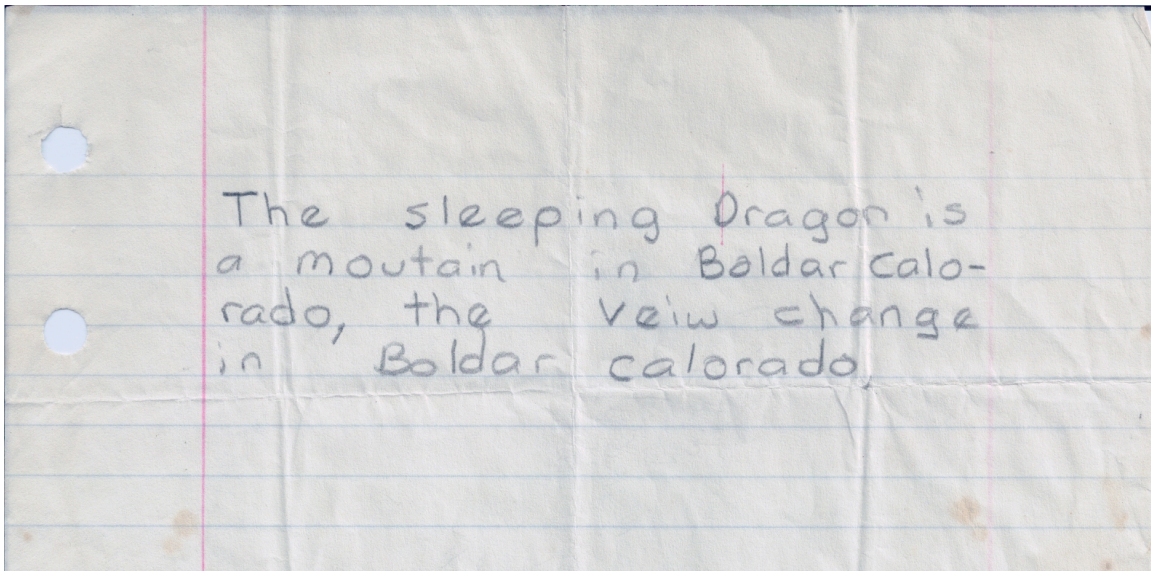 The sleeping Dragon is
a moutain in Boldar Calo-
rado, the veiw change
in Boldar calorado.